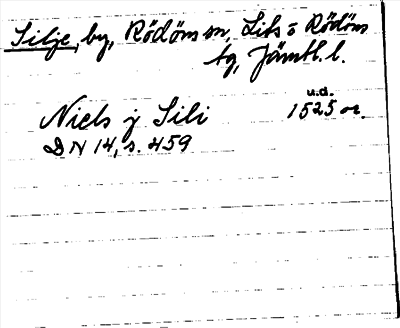 Silje, by, Rödöns sn, Lits o Rödöns
tg, Jämtl. l.
u.d.
Niels j Sili 1525 or.
DN 14, s. 459